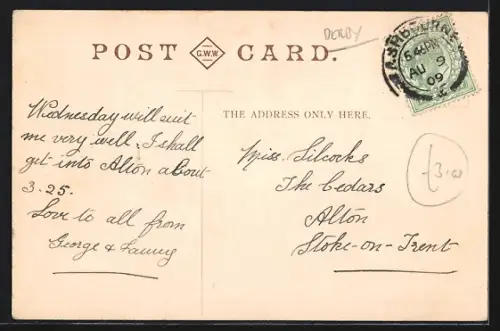 DERBY
POST G.W.W. CARD.
ASHBOURNE
5.45PM
AU 9
09
THE ADDRESS ONLY HERE.
Wednesday will suit
me very well. I shall
get into Alton about
3.25.
Love to all from
George & Fanny
Miss. Silcocks
The Cedars
Alton
Stoke-on-Trent